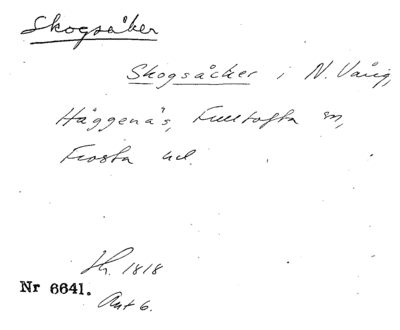 Skogsåker
Skogsåcker i N. Vång,
Häggenäs, Fulltofta sn,
Frosta hd.
1818
Nr 6641.
Akt 6.